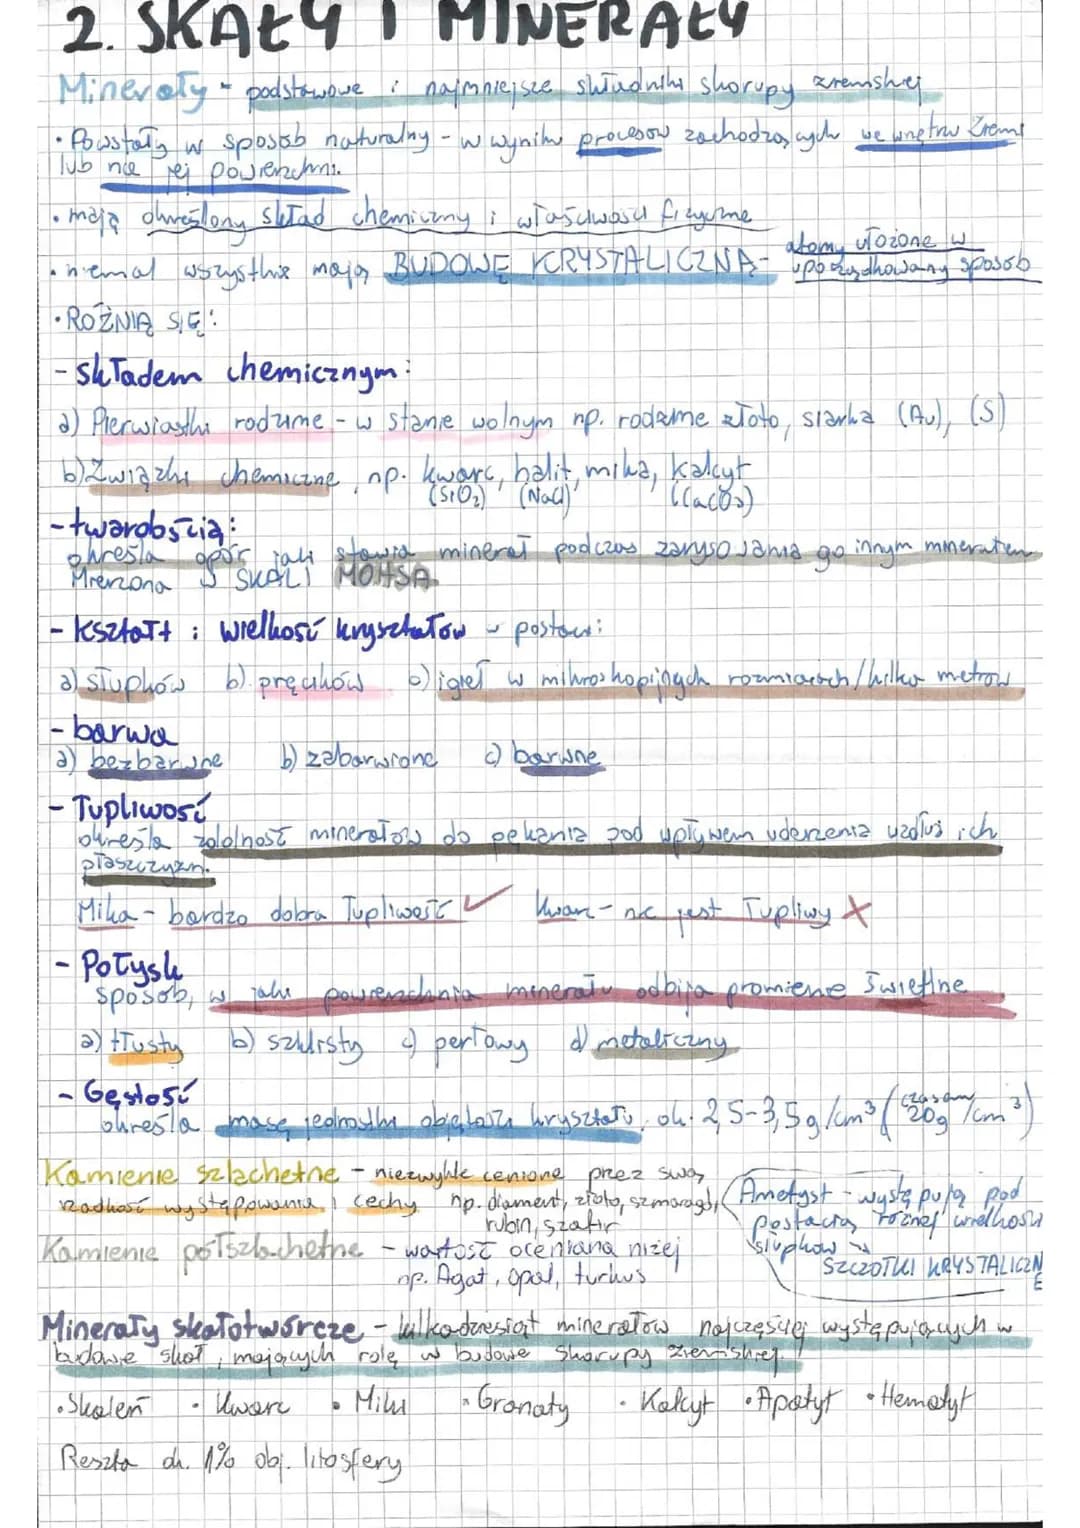 2. SKAŁY I MINERAŁY
Minerały - podstawowe i najmniejsze składniki skorupy ziemskiej
• Powstały w sposób naturalny - w wyniku procesów zachodzących we wnętrzu Ziemi
lub na jej powierzchni.
• mają określony skład chemiczny i właściwości fizyczne
• niemal wszystkie mają BUDOWĘ KRYSTALICZNĄ - atomy ułożone w
uporządkowany sposób
• RÓŻNIĄ SIĘ:
- składem chemicznym:
a) Pierwiastki rodzime - w stanie wolnym np. rodzime złoto, siarka (Au), (S)
b) Związki chemiczne, np. kwarc, halit, mika, kalcyt
(SiO₂) (NaCl) (CaCO₃)
- twardością:
określa opór jaki stawia minerał podczas zarysowania go innym minerałem
Mierzona w SKALI MOHSA.
- kształt i wielkość kryształów w postaci:
a) słupków b) pręcików c) igieł w mikroskopijnych rozmiarach/kilka metrów
- barwa
a) bezbarwne b) zabarwione c) barwne
- Łupliwość
określa zdolność minerałów do pękania pod wpływem uderzenia wzdłuż ich
płaszczyzn.
Mika - bardzo dobra łupliwość ✓ Kwarc - nie jest łupliwy X
- Połysk
sposób, w jaki powierzchnia minerału odbija promienie świetlne
a) tłusty b) szklisty c) perłowy d) metaliczny
- Gęstość
określa masę jednostki objętości kryształu, ok. 2,5-3,5g/cm³ (czasami 20g/cm³)
Kamienie szlachetne - niezwykle cenione przez swą
rzadkość występowania i cechy np. diament, złoto, szmaragd,
rubin, szafir
Ametyst - występują pod
postacią różnej wielkości
słupków →
SZCZOTKI KRYSTALICZNE
Kamienie półszlachetne - wartość oceniana niżej
np. Agat, opal, turkus
Minerały skałotwórcze - kilkadziesiąt minerałów najczęściej występujących w
budowie skał, mających rolę w budowie skorupy ziemskiej
• Skaleń • Kwarc • Miki • Granaty • Kalcyt • Apatyt • Hematyt
Reszta ok. 1% obj. litosfery